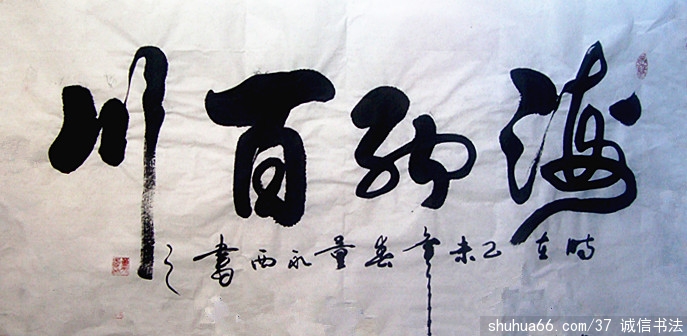 海納百川
時在乙未年春量永西書之
shuhua66.com/37 诚信书法